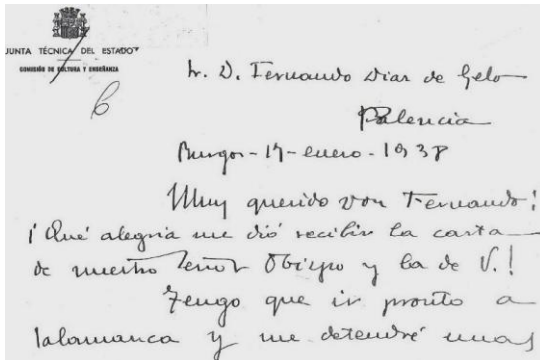 JUNTA TÉCNICA DEL ESTADO
COMISIÓN DE CULTURA Y ENSEÑANZA
Sr. D. Fernando Diaz de Gelo
Palencia
Burgos - 17 - enero - 1938
Muy querido don Fernando:
¡Qué alegria me dió recibir la carta
de nuestro Señor Obispo y la de V.!
Tengo que ir pronto a
Salamanca y me detendré unas